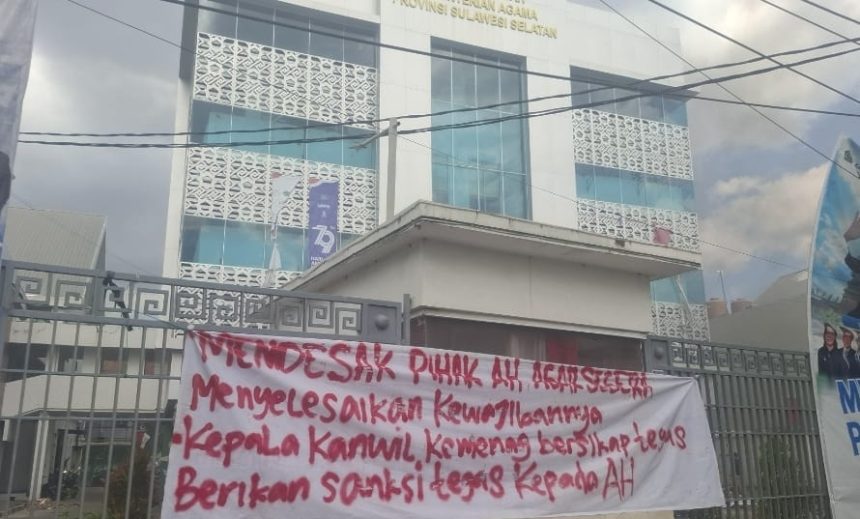 KEMENTERIAN AGAMA
PROVINSI SULAWESI SELATAN
79
MENDESAK PIHAK AH AGAR SEGERA
Menyelesaikan Kewajibannya
-Kepala Kanwil Kemenag bersikap tegas
Berikan sanksi tegas Kepada AH